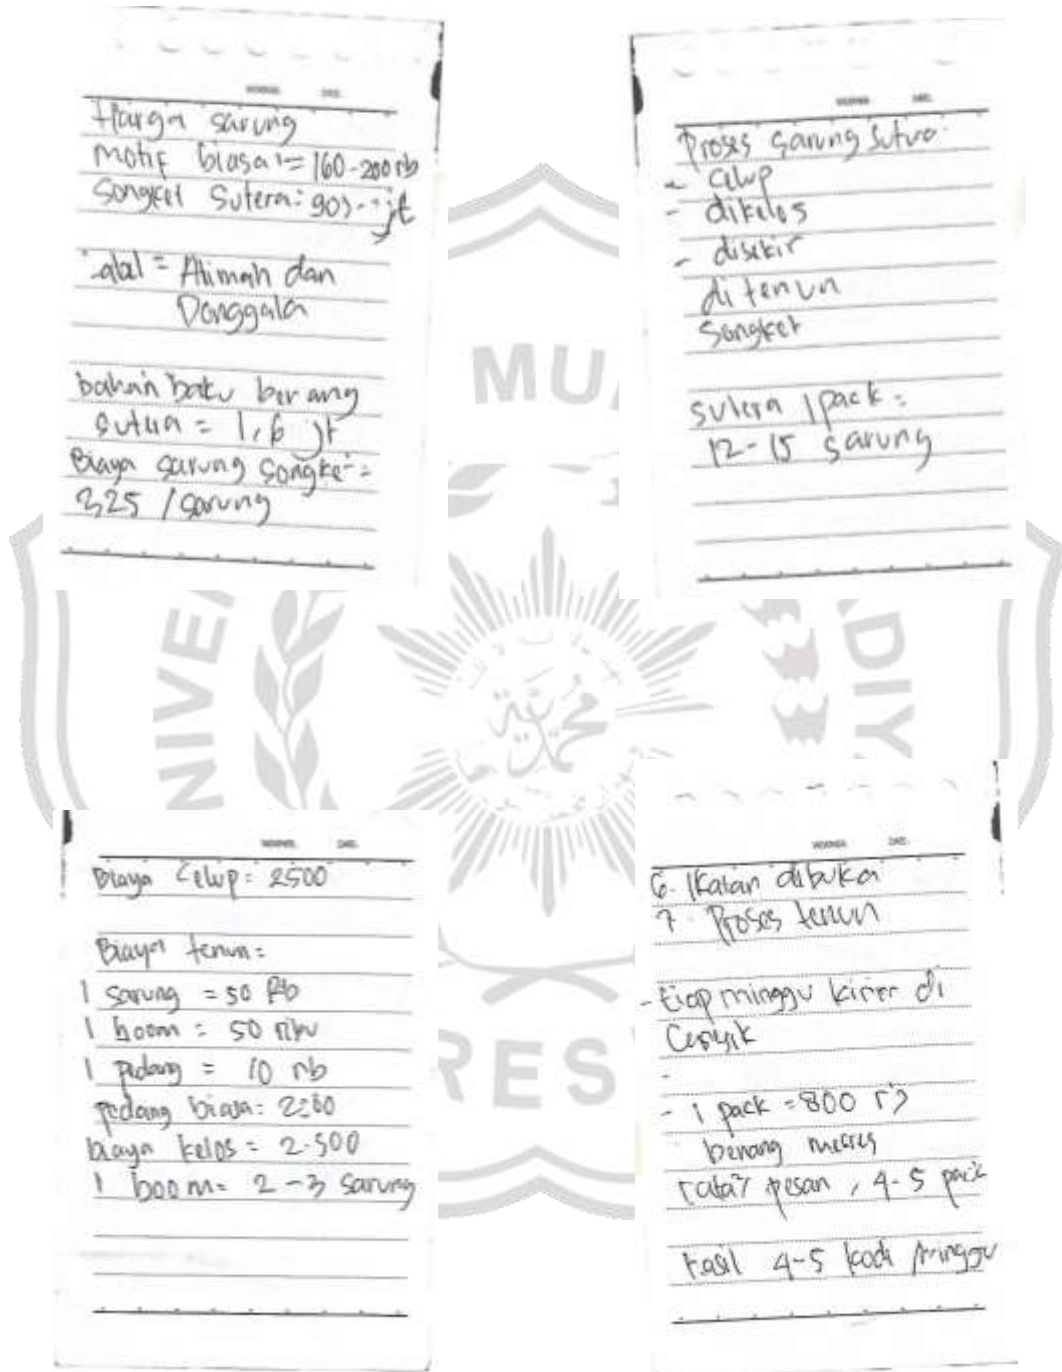 Harga sarung
motif biasa = 160-200 rb
Songket Sutera: 900 - jt
Label = Atimah dan
Donggala
bahan baku benang
sutera = 1,6 jt
Biaya sarung songket =
325 / sarung
Proses sarung sutra
- celup
- dikelos
- disekir
ditenun
songket
sutera 1 pack =
12-15 sarung
MU
NIVE
DIY
RES
Biaya Celup: 2500
Biaya tenun =
1 sarung = 50 Rb
1 boom = 50 ribu
1 pedang = 10 rb
pedang biasa:
biaya kelos = 2.500
1 boom = 2-3 sarung
6. Ikatan dibuka
7. Proses tenun
- tiap minggu kirim di
- 1 pack = 800 rb
benang
rata2 pesan, 4-5 pack
hasil 4-5 kodi /minggu